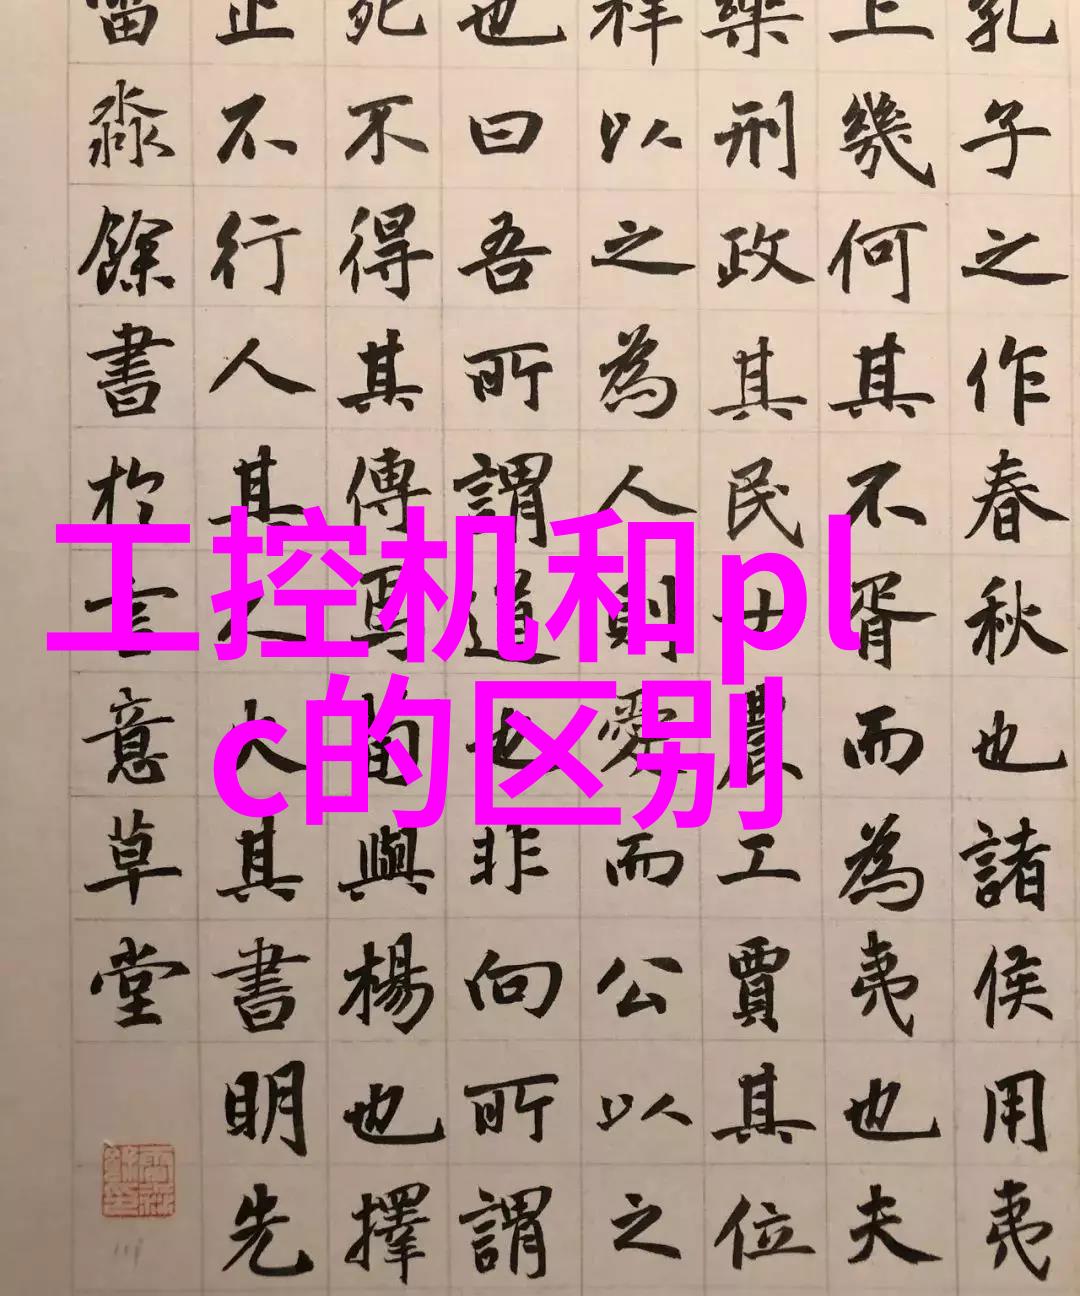 乳子之作春秋也諸侯用夷
上幾何其不胥而為夷也夫
樂刑政其民士農工賈其位
祥以之為人則愛而公以之
也曰吾所謂道也非向所謂
死不得其傳焉荀與楊也擇
止不行人其人火其書明先
留淼餘書於言意草堂
工控机和pl
c的区别